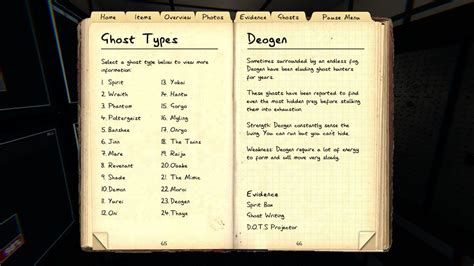 Home Items Overview Photos Evidence Ghosts Pause Menu
Ghost Types
Select a ghost type below to view more
information:
1. Spirit 13. Yokai
2. Wraith 14. Hantu
3. Phantom 15. Goryo
4. Poltergeist 16. Myling
5. Banshee 17. Onryo
6. Jinn 18. The Twins
7. Mare 19. Raiju
8. Revenant 20. Obake
9. Shade 21. The Mimic
10. Demon 22. Moroi
11. Yurei 23. Deogen
12. Oni 24. Thaye
65
Deogen
Sometimes surrounded by an endless fog,
Deogen have been eluding ghost hunters
for years.
These ghosts have been reported to find
even the most hidden prey, before stalking
them into exhaustion.
Strength: Deogen constantly sense the
living. You can run but you can't hide.
Weakness: Deogen require a lot of energy
to form and will move very slowly.
Evidence
Spirit Box
Ghost Writing
D.O.T.S Projector
66